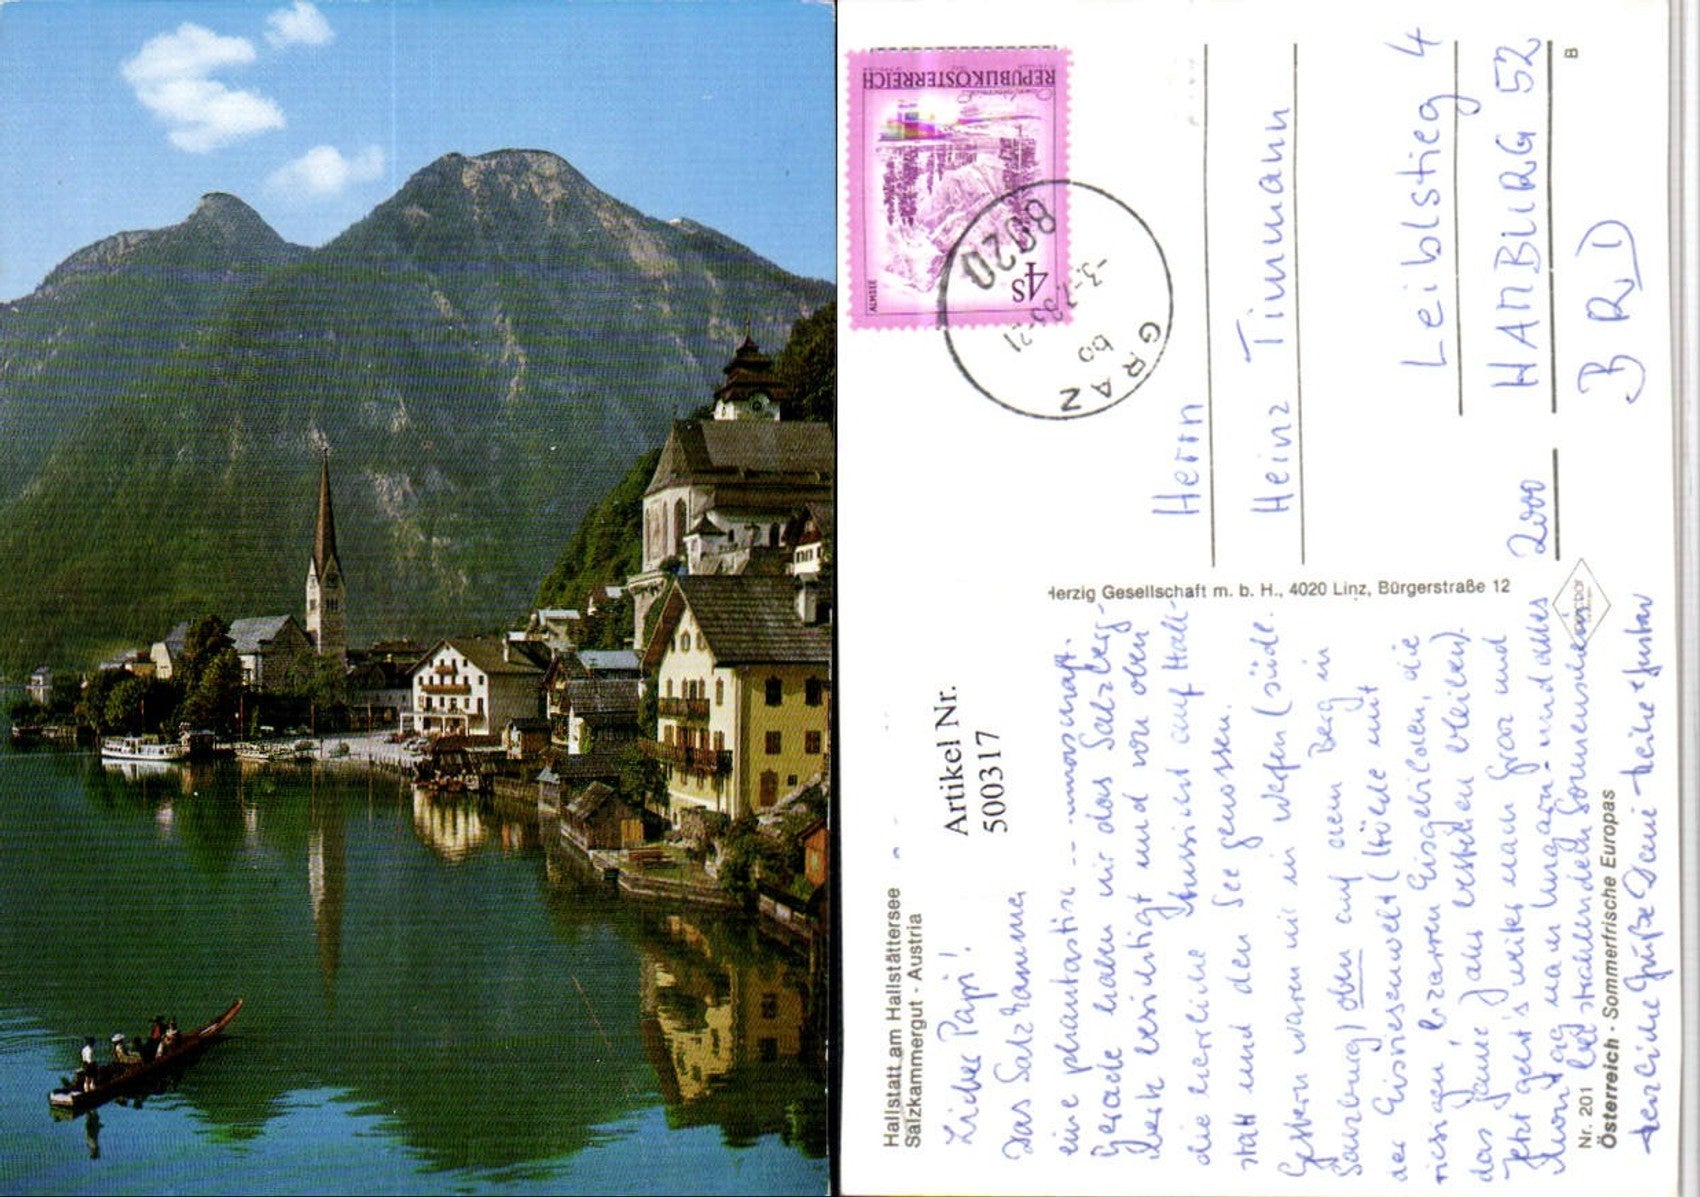 Hallstatt am Hallstättersee
Salzkammergut - Austria
Artikel Nr.
500317
Lieber Papi!
Das Salzkammergut
eine phantastische
Gerade haben wir das Salzberg-
werk besichtigt und von oben
die herrliche Aussicht auf Hall-
statt und den See genossen.
Gestern waren wir in Werfen (südl.
Salzburg) oben auf dem Berg in
der Eisriesenwelt (Höhle mit
riesigen, bizarren Eisgebilden, die
das ganze Jahr bestehen bleiben).
Jetzt geht's weiter nach Graz und
Montag nach Ungarn - und alles
bei strahlendem Sonnenschein
Herzliche Grüße Deine Heike + Gustav
Nr. 201
Österreich - Sommerfrische Europas
Herzig Gesellschaft m. b. H., 4020 Linz, Bürgerstraße 12
REPUBLIK ÖSTERREICH
4S
ALMSEE
8020
GRAZ
Herrn
Heinz Timmann
Leiblstieg 4
2000 HAMBURG 52
BRD
B